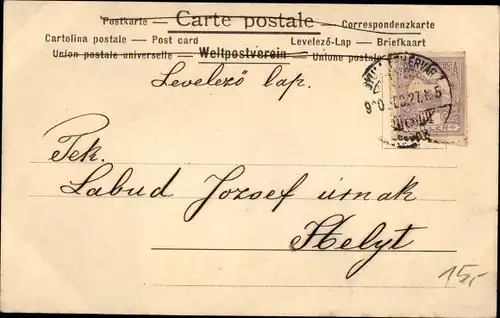 Postkarte — Carte postale — Correspondenzkarte
Cartolina postale – Post card Levelező-Lap – Briefkaart
Union postale universelle Weltpostverein Unione postale
Levelező lap.
Tek.
Labud Jozsef úrnak
Helyt
15,-